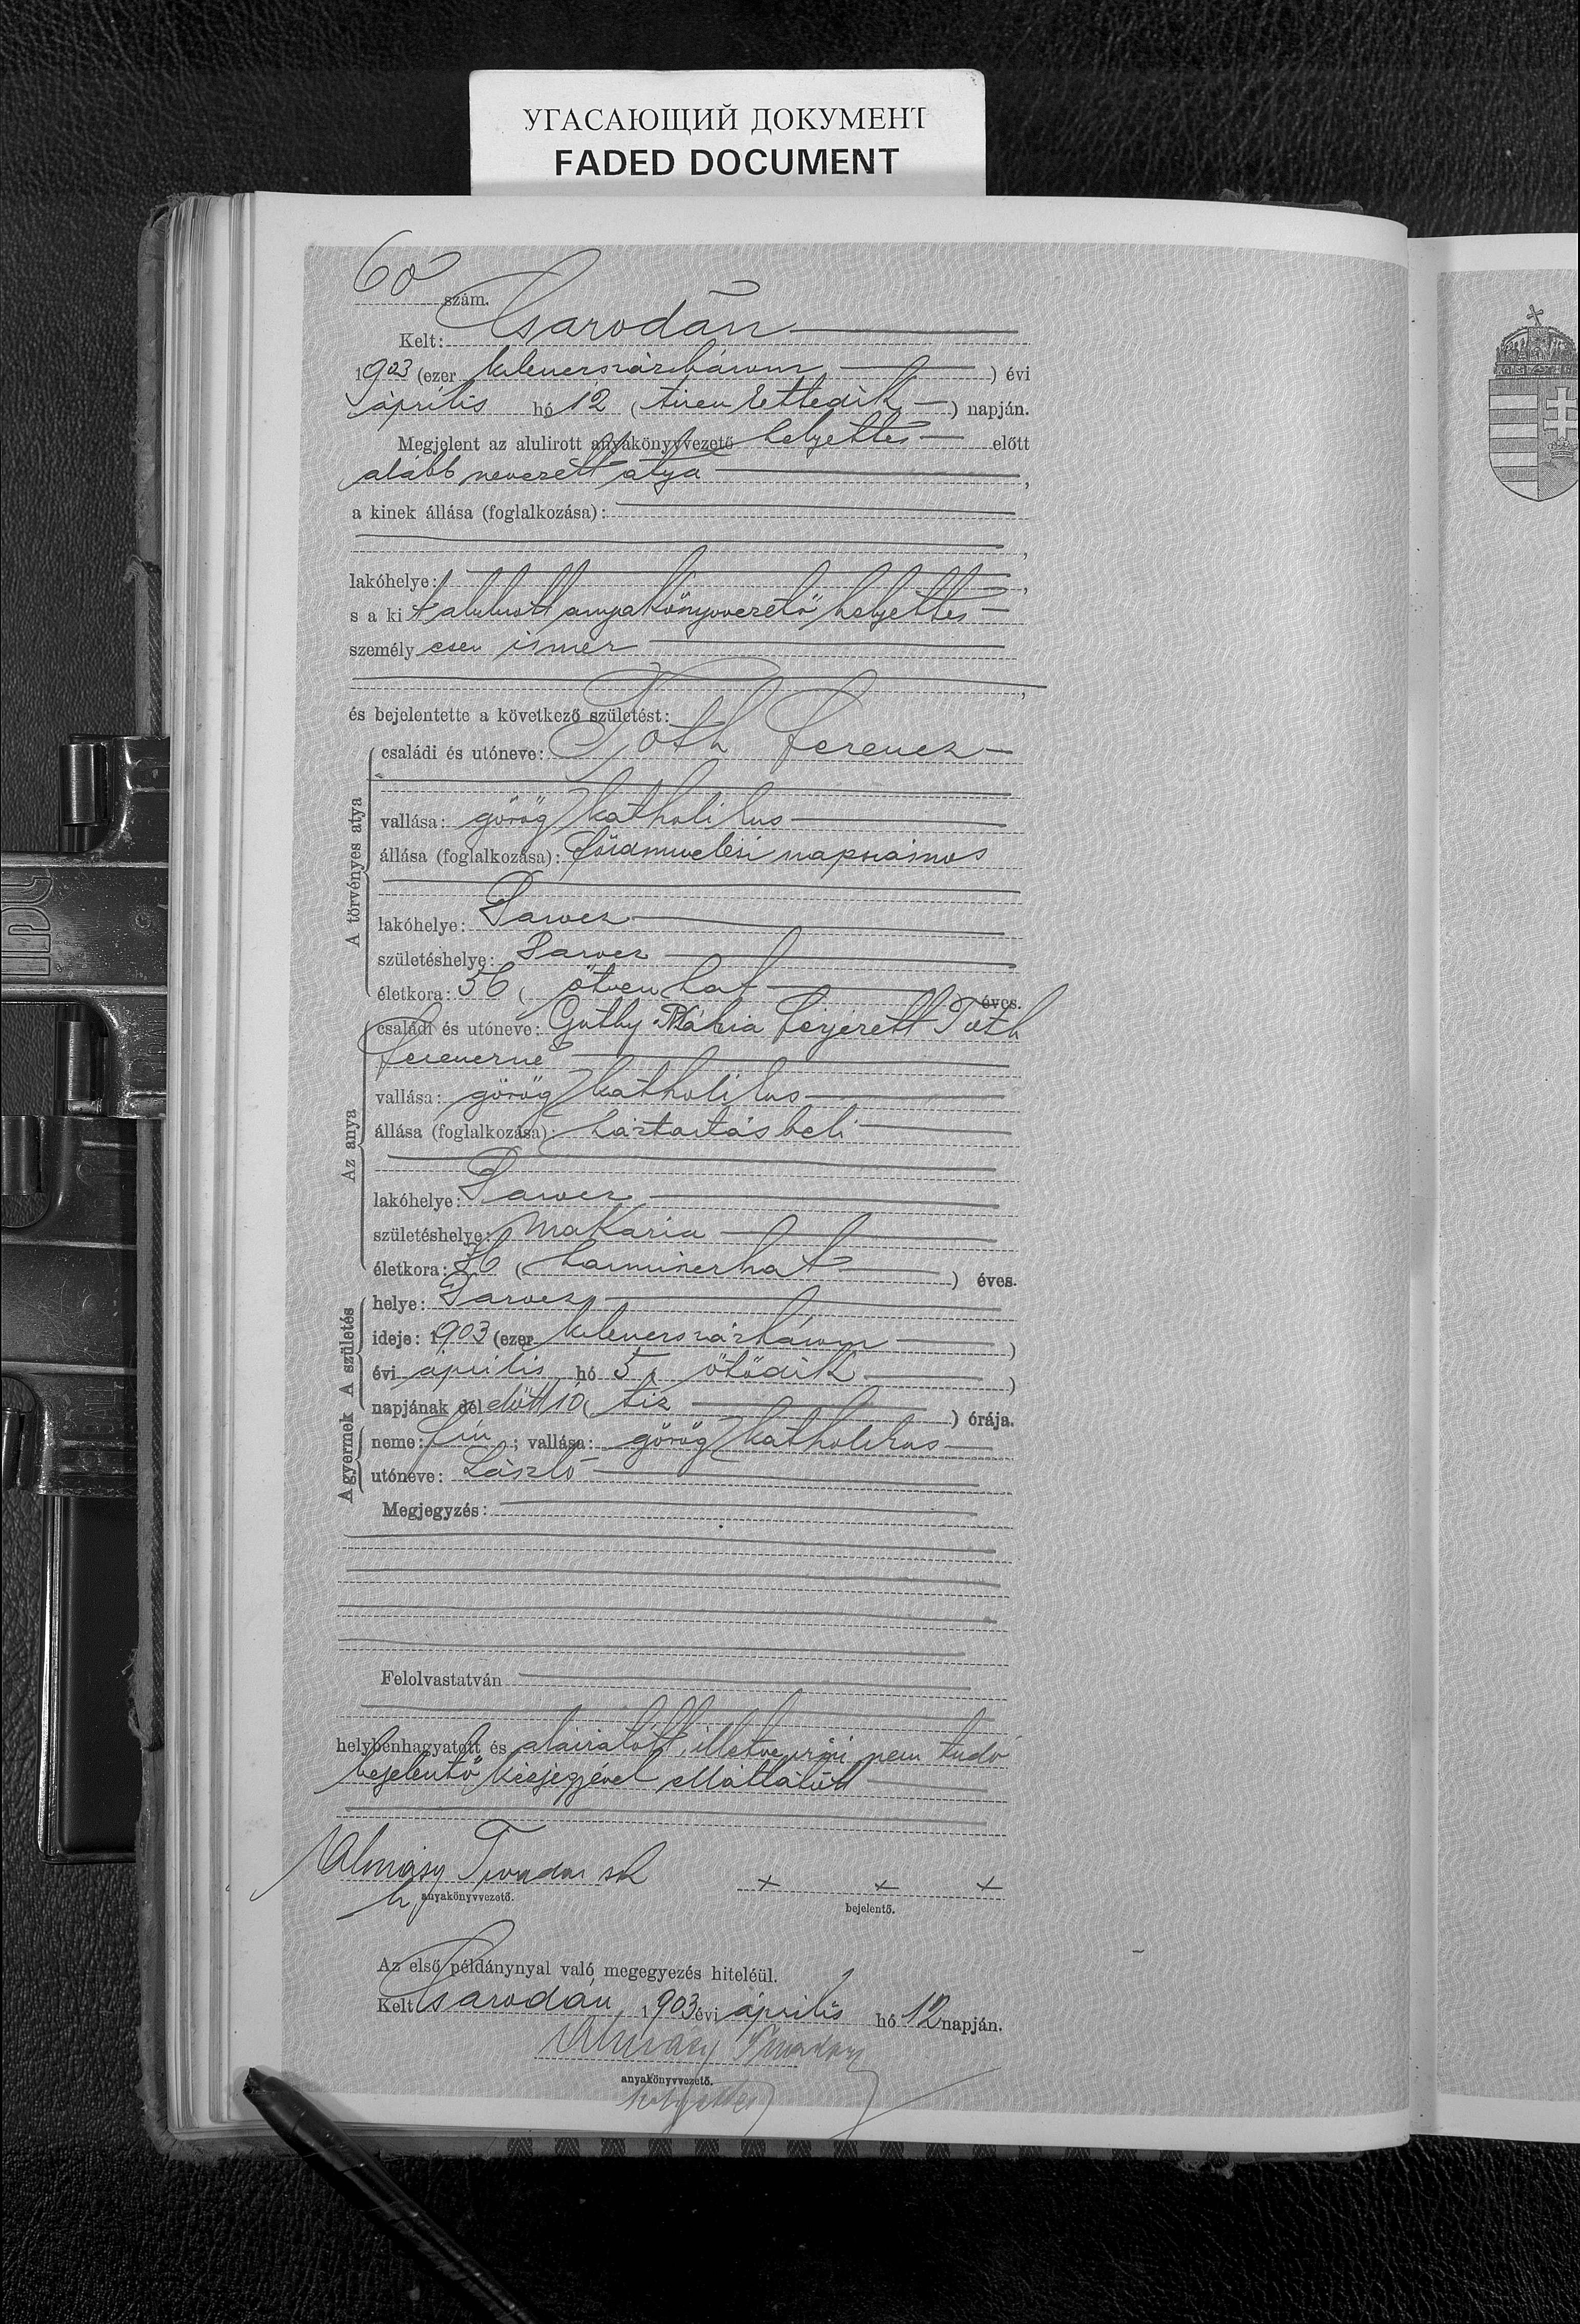 УГАСАЮЩИЙ ДОКУМЕНТ
FADED DOCUMENT
60 szám.
Kelt: Csarodán
1903 (ezer kilenczszázhárom) évi
április hó 12 (tizenkettedik) napján.
Megjelent az alulirott anyakönyvvezető helyettes előtt
alább nevezett atya,
a kinek állása (foglalkozása):
,
lakóhelye: ,
s a kit alulirott anyakönyvvezető helyettes
személyesen ismer
,
és bejelentette a következő születést:
A törvényes atya
családi és utóneve: Tóth Ferencz
vallása: görög katholikus
állása (foglalkozása): földmivelési napszámos
lakóhelye:
születéshelye:
életkora: 56 (ötvenhat éves.
Az anya
családi és utóneve: Guthy Mária férjezett Tóth
Ferenczné
vallása: görög katholikus
állása (foglalkozása): háztartásbeli
lakóhelye:
születéshelye: Makaria
életkora: 36 (harminczhat) éves.
A születés
helye:
ideje: 1903 (ezer kilenczszázhárom)
évi április hó 5 (ötödik)
napjának délelőtt 10 (tiz) órája.
A gyermek
neme: fiú; vallása: görög katholikus
utóneve: László
Megjegyzés:
Felolvastatván
helybenhagyatott és aláiratott, illetve irni nem tudó
bejelentő kézjegyével elláttatott
Almásy Tivadar sk
h. anyakönyvvezető.
+ + +
bejelentő.
Az első példánynyal való megegyezés hiteléül.
Kelt Csarodán, 1903 évi április hó 12 napján.
Almásy Tivadar
anyakönyvvezető.
helyettes